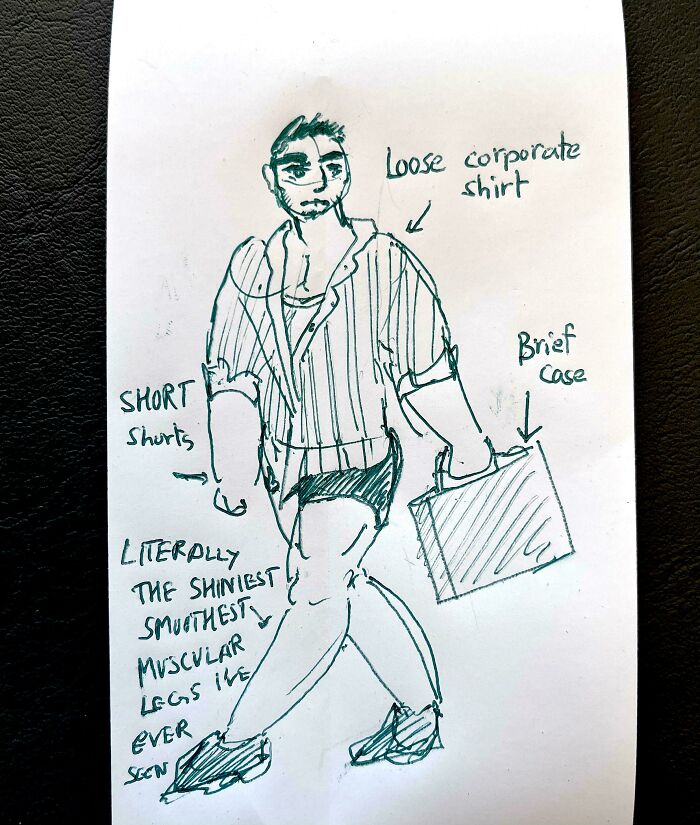 Loose corporate
shirt
Brief
case
SHORT
shorts
LITERALLY
THE SHINIEST
SMOOTHEST
MUSCULAR
LEGS I'VE
EVER
SEEN